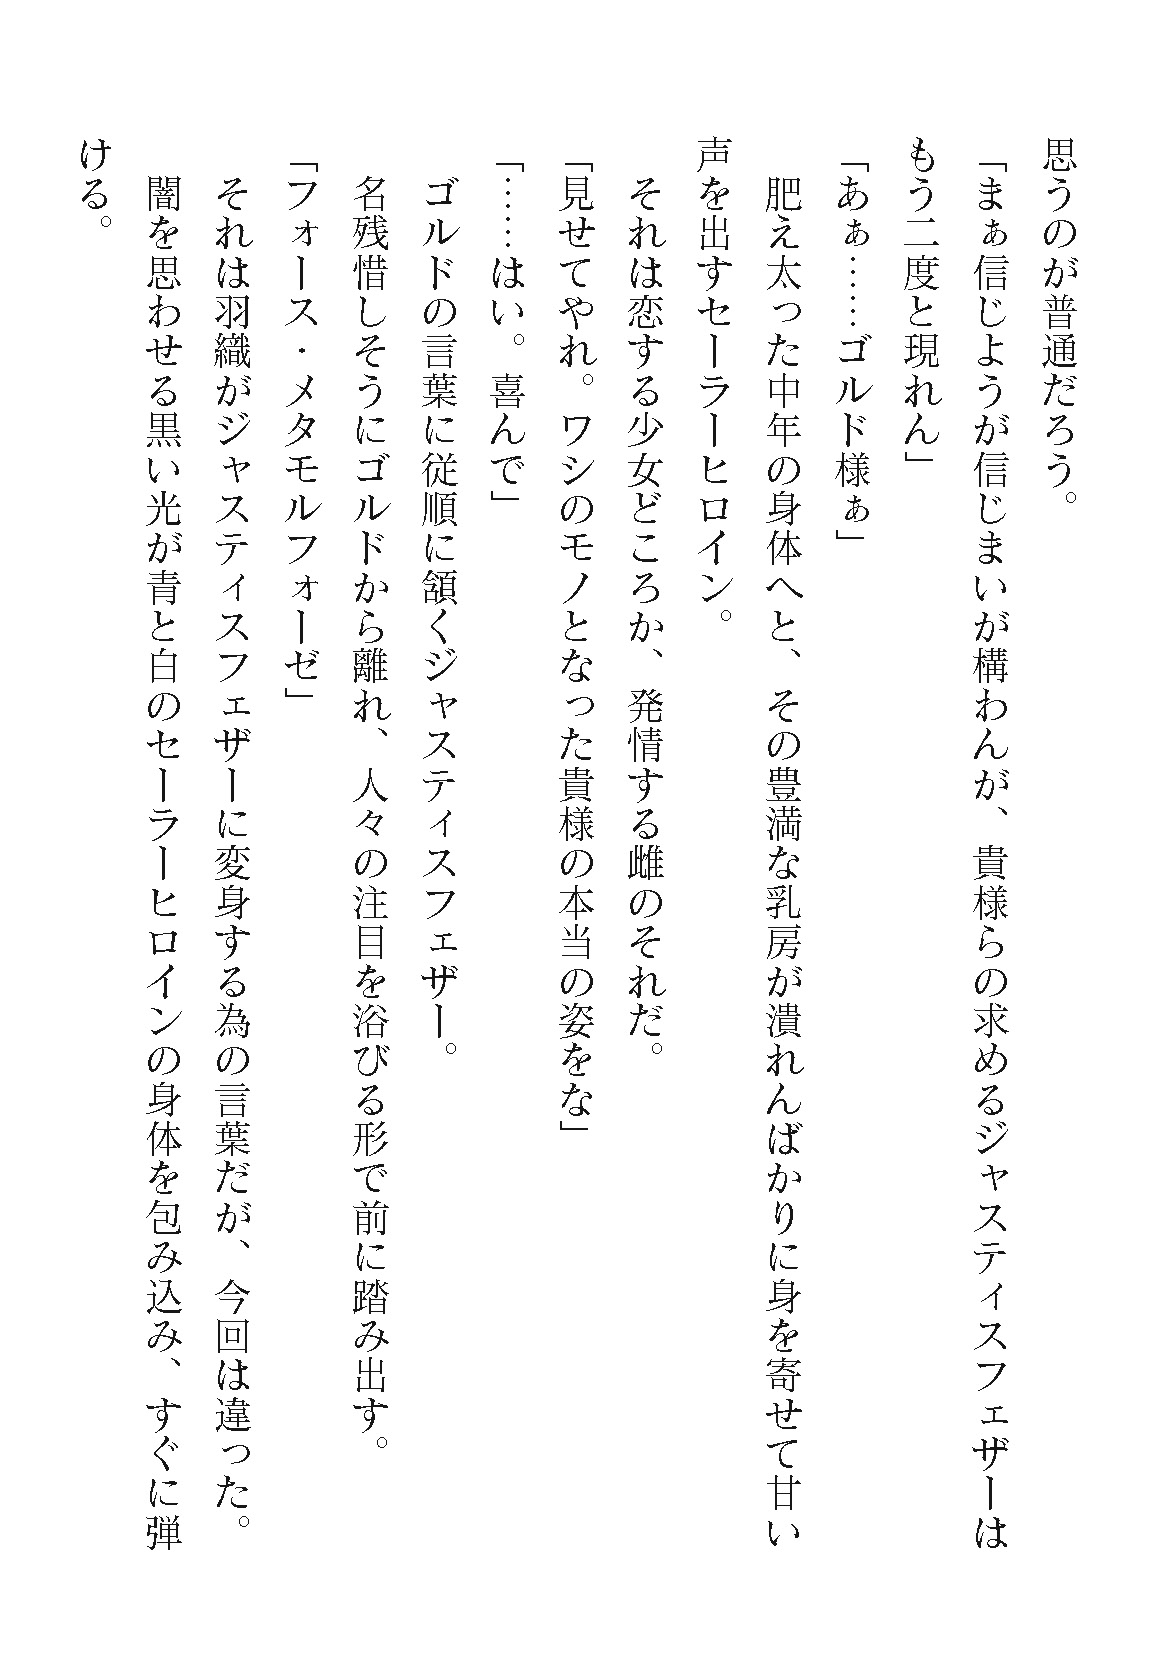 思うのが普通だろう。
「まぁ信じようが信じまいが構わんが、貴様らの求めるジャスティスフェザーは
もう二度と現れん」
「あぁ……ゴルド様ぁ」
肥え太った中年の身体へと、その豊満な乳房が潰れんばかりに身を寄せて甘い
声を出すセーラーヒロイン。
それは恋する少女どころか、発情する雌のそれだ。
「見せてやれ。ワシのモノとなった貴様の本当の姿をな」
「……はい。喜んで」
ゴルドの言葉に従順に頷くジャスティスフェザー。
名残惜しそうにゴルドから離れ、人々の注目を浴びる形で前に踏み出す。
「フォース・メタモルフォーゼ」
それは羽織がジャスティスフェザーに変身する為の言葉だが、今回は違った。
闇を思わせる黒い光が青と白のセーラーヒロインの身体を包み込み、すぐに弾
ける。